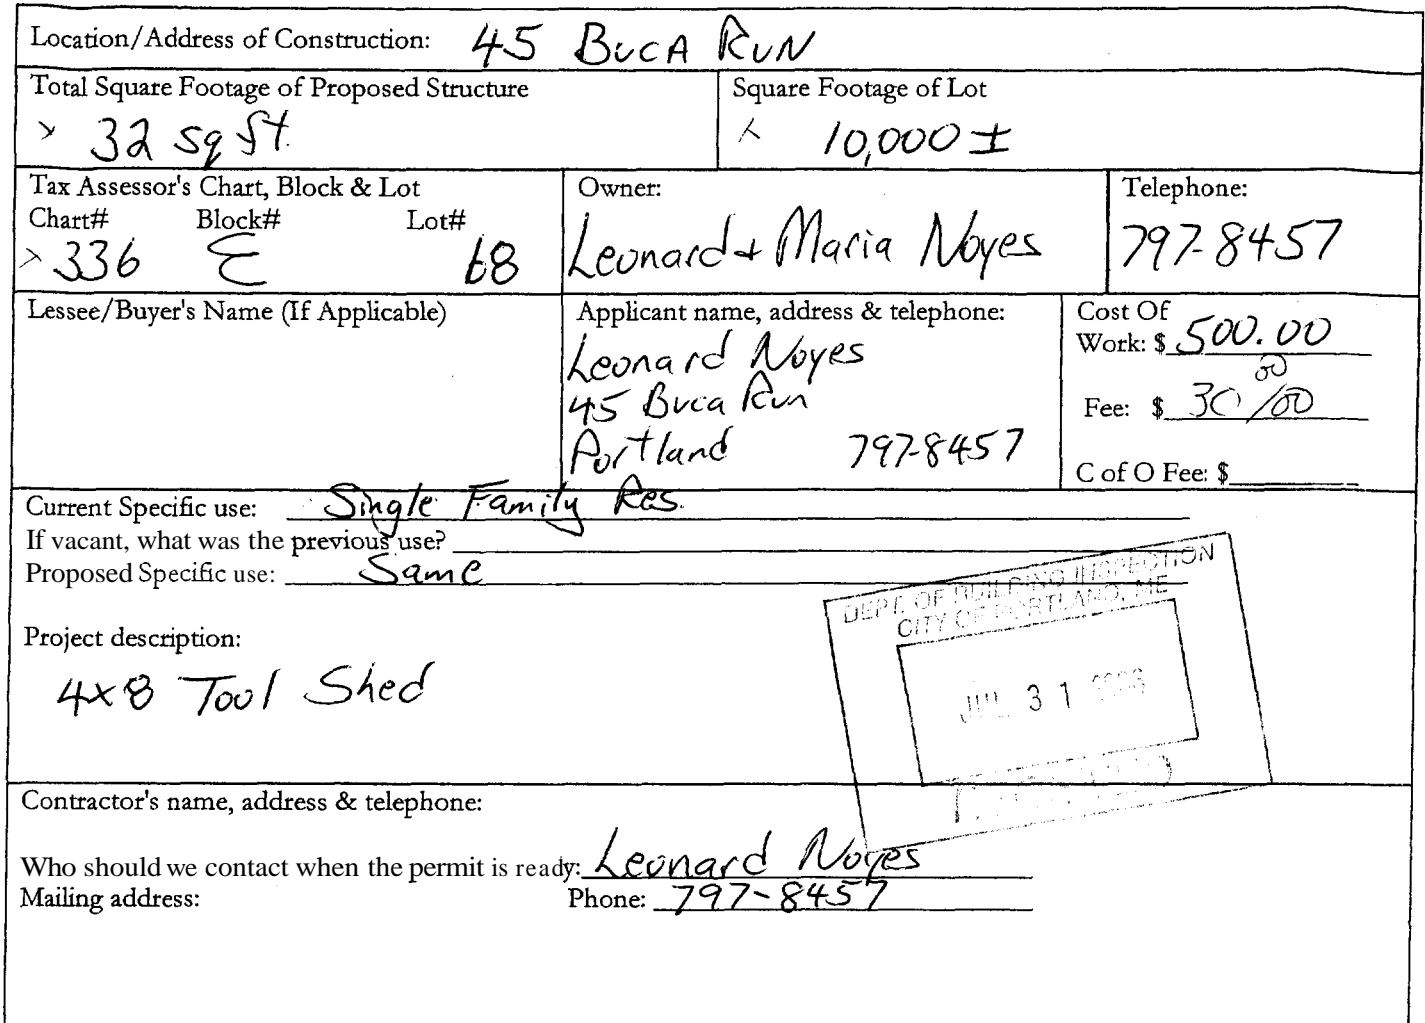 Location/Address of Construction: 45 Buca Run
Total Square Footage of Proposed Structure
32 sq ft.
Square Footage of Lot
10,000 ±
Tax Assessor's Chart, Block & Lot
Chart# Block# Lot#
336 E 68
Owner:
Leonard + Maria Noyes
Telephone:
797-8457
Lessee/Buyer's Name (If Applicable)
Applicant name, address & telephone:
Leonard Noyes
45 Buca Run
Portland 797-8457
Cost Of
Work: $ 500.00
Fee: $ 30 00/00
C of O Fee: $
Current Specific use: Single Family Res.
If vacant, what was the previous use?
Proposed Specific use: Same
Project description:
4x8 Tool Shed
DEPT. OF BUILDING INSPECTION
CITY OF PORTLAND, ME
JUL 31
Contractor's name, address & telephone:
Who should we contact when the permit is ready: Leonard Noyes
Mailing address: Phone: 797-8457